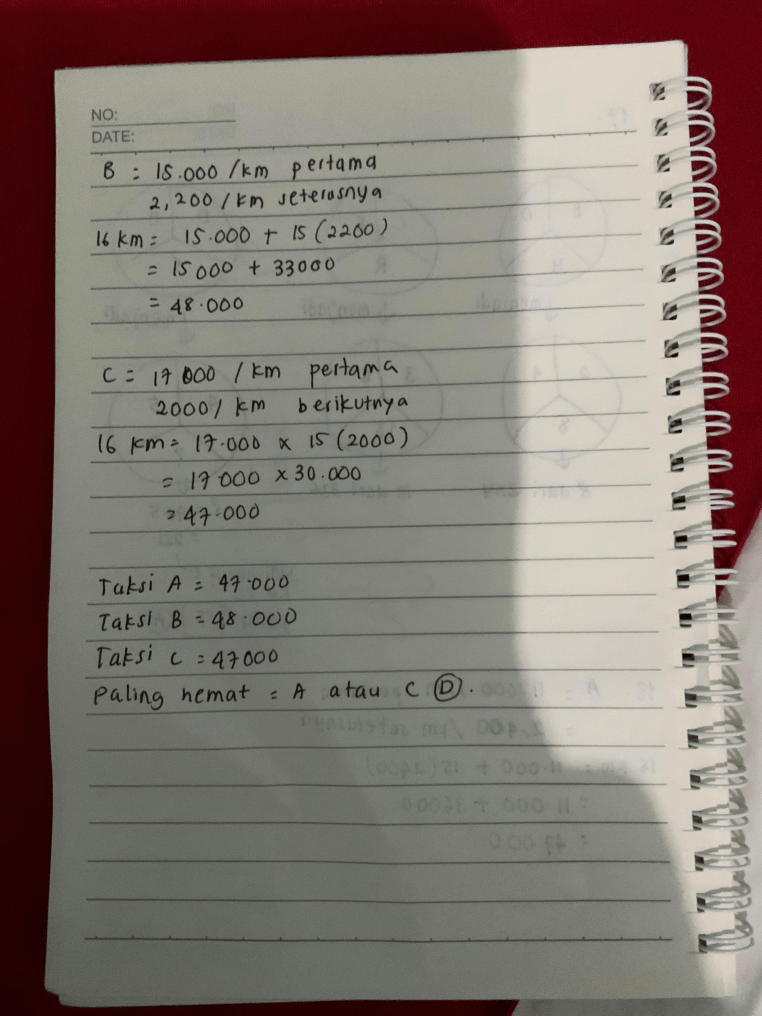 NO:
DATE:
B = 15.000 /km pertama
2,200 /km seterusnya
16 km = 15.000 + 15 (2200)
= 15000 + 33000
= 48.000
C = 17 000 / km pertama
2000/ km berikutnya
16 km = 17.000 x 15 (2000)
= 17000 x 30.000
= 47.000
Taksi A = 47.000
Taksi B = 48.000
Taksi C = 47000
Paling hemat = A atau C D.